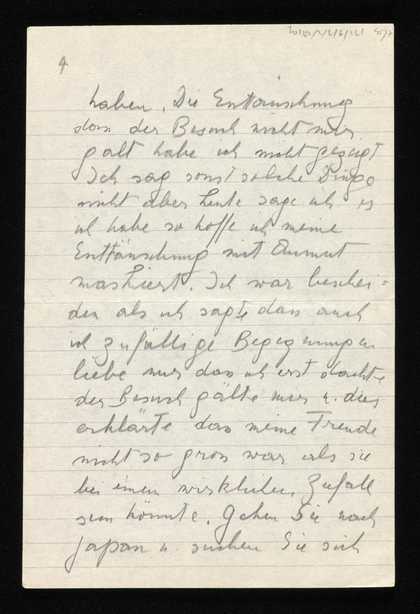 4
haben. Die Enttäuschung
dass der Besuch nicht mir
galt habe ich nicht gesagt
Ich sag sonst solche Dinge
nicht aber heute sage ich es
ich habe so hoffe ich meine
Enttäuschung mit Anmut
maskiert. Ich war beschei=
den als ich sagte dass auch
ich zufällige Begegnungen
liebe nur dass ich erst dachte
der Besuch gälte mir u. dies
erklärte dass meine Freude
nicht so gross war als sie
bei einem wirklichen Zufall
sein könnte. Gehen Sie nach
Japan u. suchen Sie sich